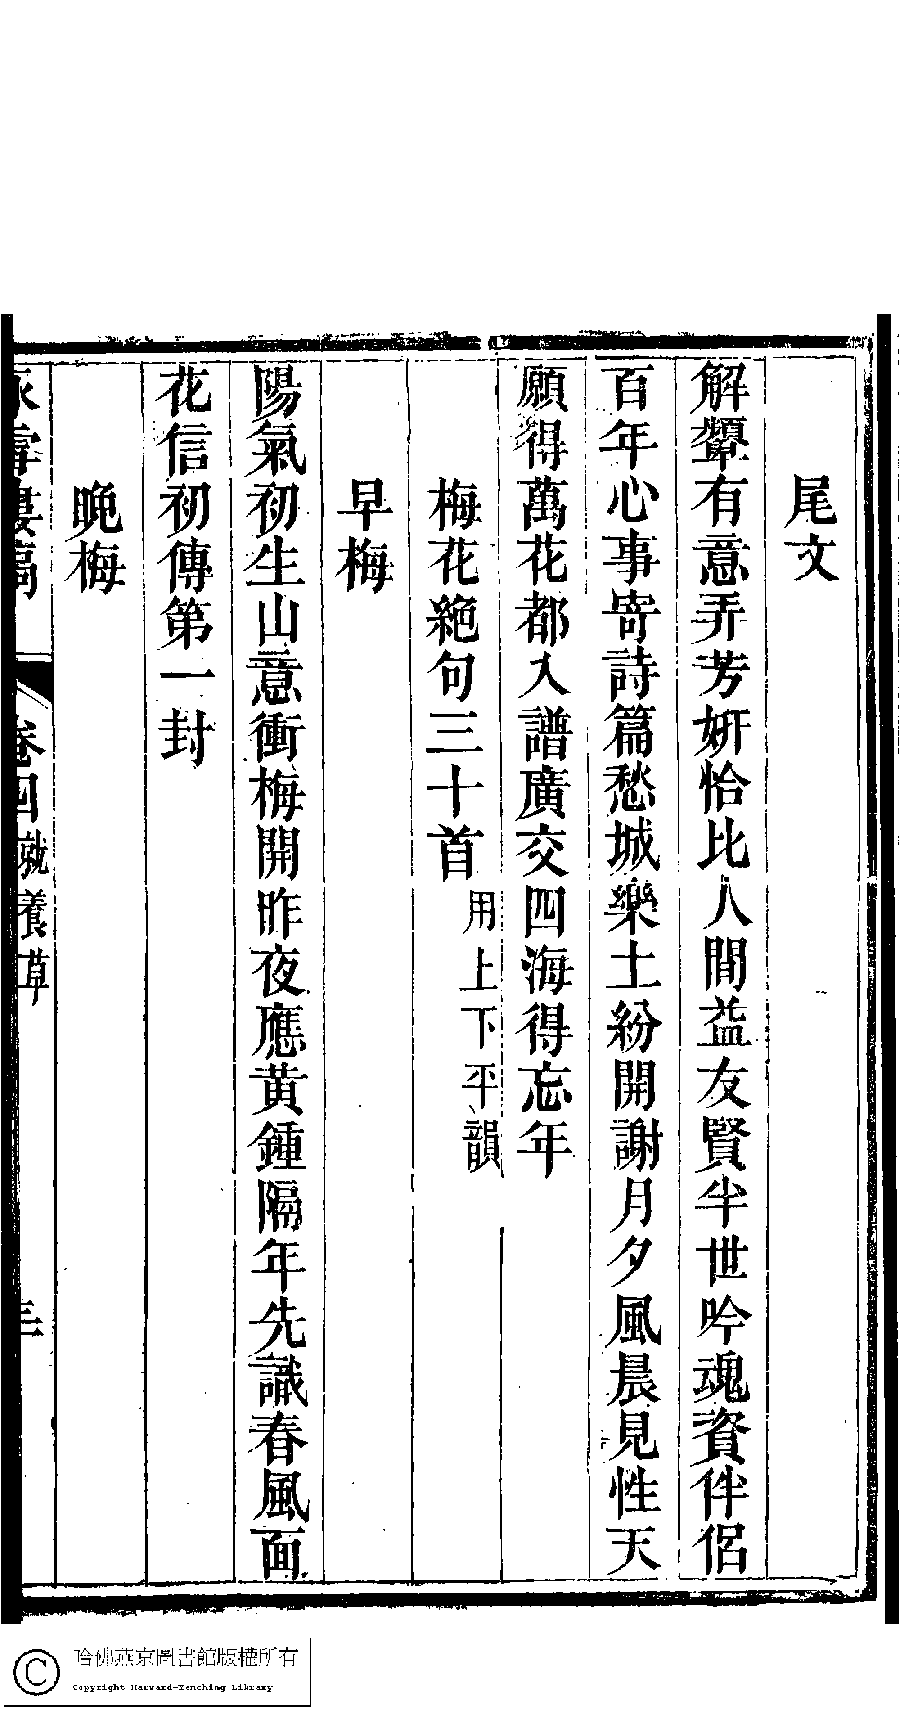 尾文
解顰有意弄芳妍恰比人間益友賢半世吟魂資伴侶
百年心事寄詩篇愁城樂土紛開謝月夕風晨見性天
願得萬花都入譜廣交四海得忘年
梅花絶句三十首用上下平韻
早梅
陽氣初生山意衝梅開昨夜應黃鍾隔年先識春風面
花信初傳第一封
晚梅
卷四就養草
哈佛燕京圖書館版權所有
Copyright Harvard-Yenching Library